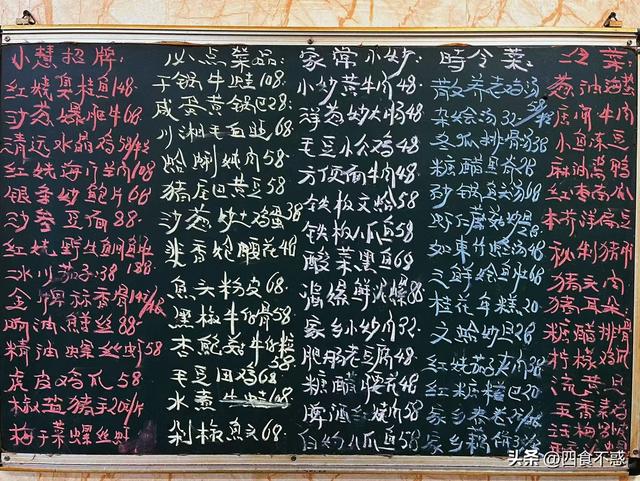 小慧招牌
红烧臭桂鱼148
沙葱爆肥牛68
清远水晶鸡58/
红烧海门羊肉108
银杏炒鲍片68
沙参豆腐88
红烧野生鮰鱼
冰川茄子38
金牌蒜香骨
响油鳝丝88
精油螺丝虾58
虎皮鸡爪58
椒盐猪手20
梅干菜螺丝
必点菜品
干锅牛蛙108
咸蛋黄锅巴28
川湘毛血旺68
蛤蜊炖肉58
猪尾巴黄豆58
沙葱炒土鸡蛋38
米香炝腰花48
鱼头粉皮68
黑椒牛仔骨58
杏鲍菇牛仔粒58
毛豆田鸡68
水煮牛蛙108
剁椒鱼头68
家常小炒
小炒黄牛肉48
洋葱炒大肠48
毛豆小公鸡48
方便面牛肉48
铁板文蛤58
铁板八爪鱼58
酸菜黑鱼69
家乡小炒肉32
肥肠老豆腐48
糖醋腰花48
啤酒红烧肉58
白灼八爪鱼58
時令菜
杂烩汤32
冬瓜排骨汤38
糖醋里脊28
砂锅
虾仁蘑菇
如東竹蛏汤48
三鲜
桂花年糕20
文蛤炒旦28
红烧茄子夹肉38
红糖糍巴20
家乡春卷
家乡藕饼
葱油海蜇
卤牛肉
小鱼冻豆
麻油煮鸭
红枣
本芹洋扁豆
秋
猪头肉
猪耳朵
糖醋排骨
柠檬鸡
流黄旦
五香素
头条 @四食不惑